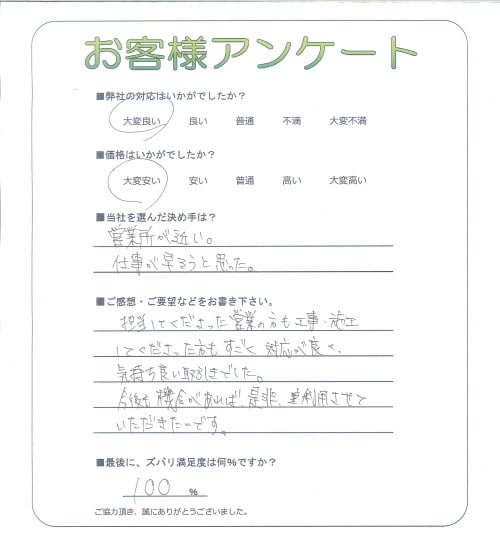 お客様アンケート
■弊社の対応はいかがでしたか？
大変良い 良い 普通 不満 大変不満
■価格はいかがでしたか？
大変安い 安い 普通 高い 大変高い
■当社を選んだ決め手は？
営業所が近い。
仕事が早そうと思った。
■ご感想・ご要望などをお書き下さい。
担当してくださった営業の方も工事・施工
してくださった方もすごく対応が良く、
気持ち良い取引きでした。
今後も機会があれば、是非、利用させて
いただきたいです。
■最後に、ズバリ満足度は何%ですか？
100 %
ご協力頂き、誠にありがとうございました。